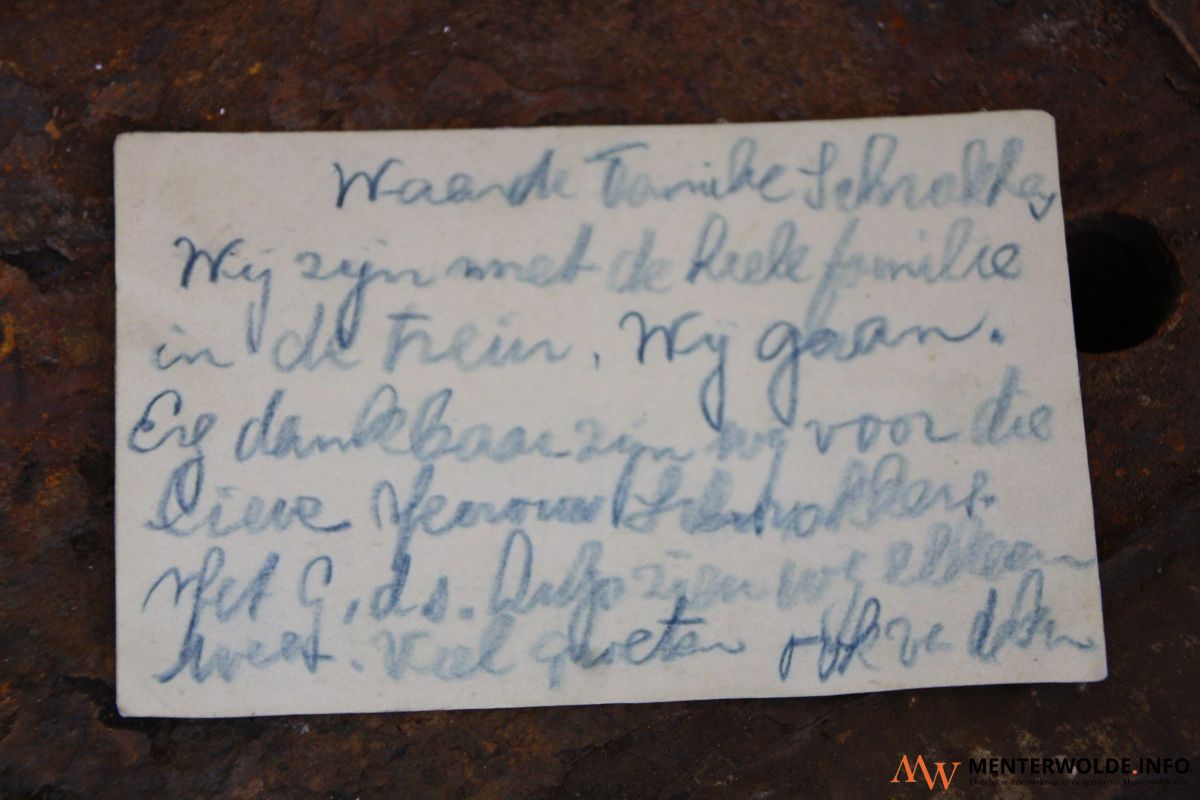 Waarde Familie Schrakke,
Wij zijn met de hele familie
in de trein. Wij gaan.
Erg dankbaar zijn wij voor die
lieve Mevrouw
Met G.ds. hulp zien wij elkaar
weer. Viel groeten
MENTERWOLDE.INFO